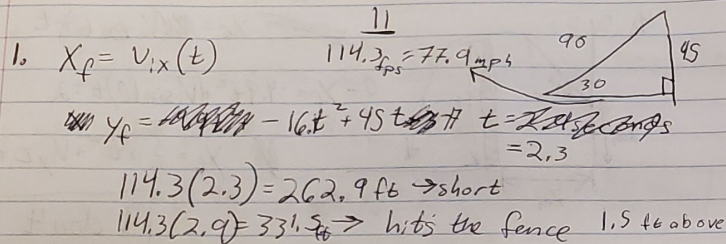 11
1. Xf = Vix(t) 114.3fps = 77.9mph 90 45
30
yf = -16t² + 45t t =
= 2.3
114.3(2.3) = 262.9 ft → short
114.3(2.9) = 331.5ft → hits the fence 1.5 ft above